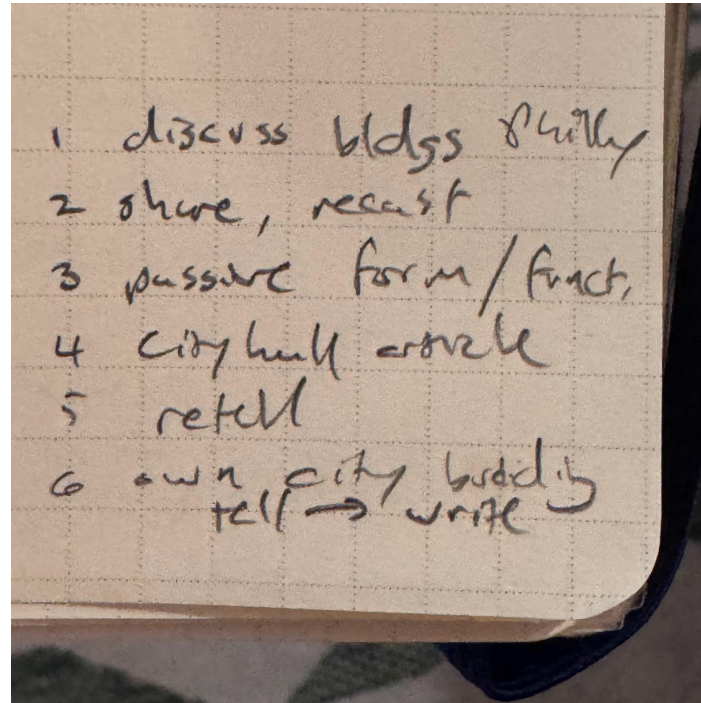 1 discuss bldgs Philly
2 share, recast
3 passive form/funct.
4 city hall article
5 retell
6 own city building
tell → write